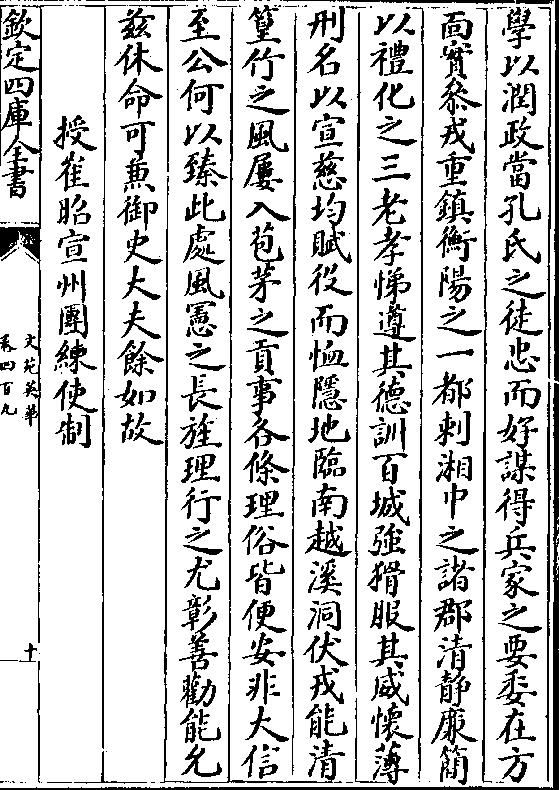 學以潤政當孔氏之徒忠而好謀得兵家之要委在方
面實叅戎重鎮衡陽之一都刺湘中之諸郡清静廉簡
以禮化之三老孝悌遵其德訓百城強猾服其威懷薄
刑名以宣慈均賦役而恤隱地臨南越溪洞伏戎能清
篁竹之風屢入苞茅之貢事各條理俗皆便安非大信
至公何以臻此處風憲之長旌理行之尤彰善勸能允
兹休命可兼御史大夫餘如故
授崔昭宣州團練使制
欽定四庫全書
文苑英華
卷四百九
十